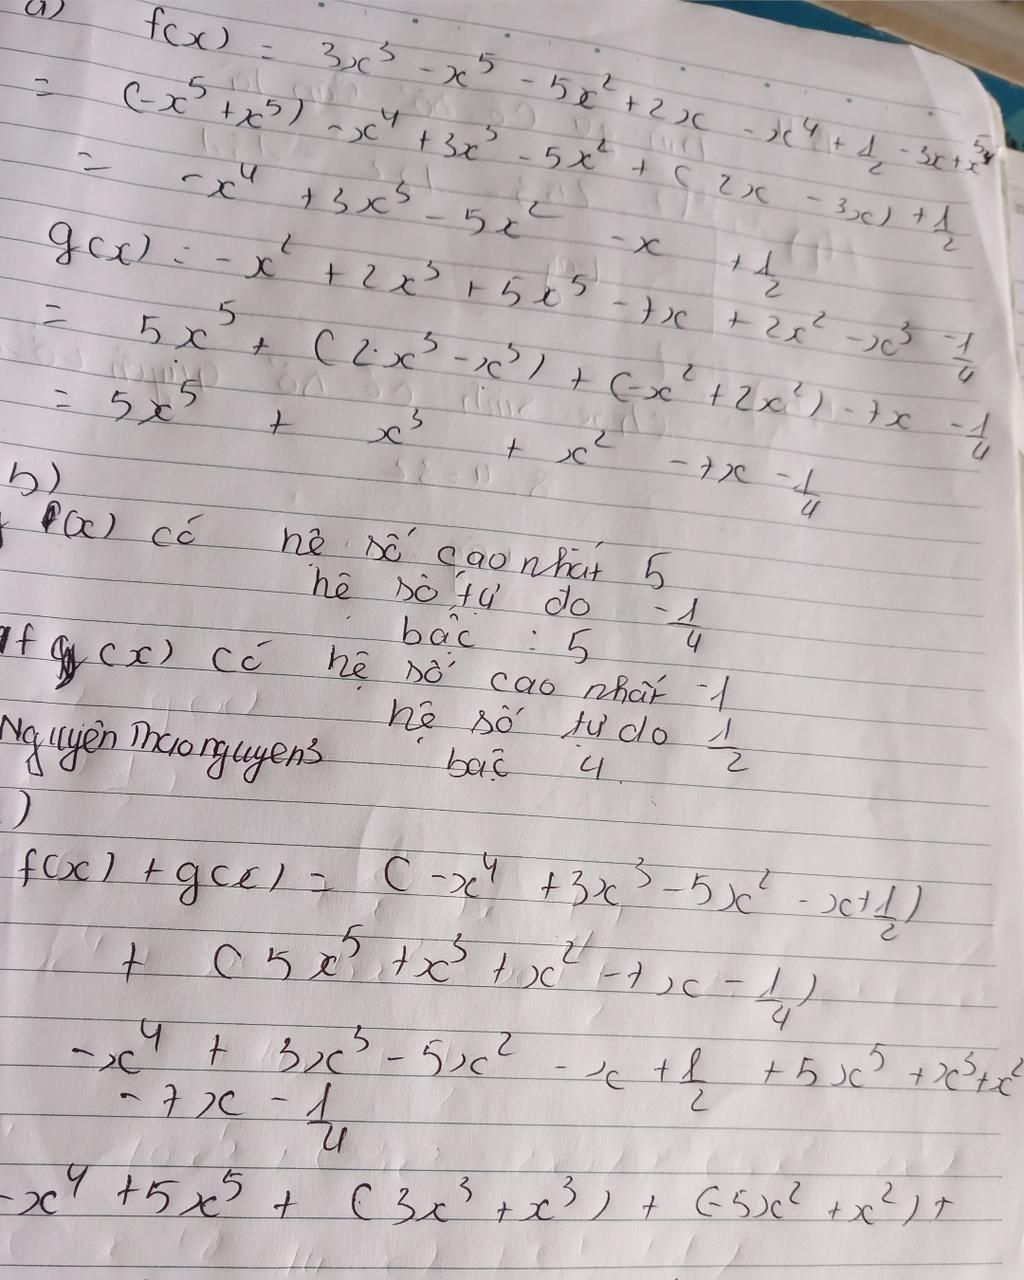 a)
f(x) = 3x³ - x⁵ - 5x² + 2x - x⁴ + 1/2 - 3x + x⁵
= (-x⁵ + x⁵) - x⁴ + 3x³ - 5x² + (2x - 3x) + 1/2
= -x⁴ + 3x³ - 5x² - x + 1/2
g(x) = -x² + 2x³ + 5x⁵ - 7x + 2x² - x³ - 1/4
= 5x⁵ + (2.x³ - x³) + (-x² + 2x²) - 7x - 1/4
= 5x⁵ + x³ + x² - 7x - 1/4
b)
(x) có hệ số cao nhất 5
hệ số tự do - 1/4
bậc : 5
f (x) có hệ số cao nhất -1
hệ số tự do 1/2
Nguyên Thaonguyen3 bậc 4
)
f(x) + g(x) = (-x⁴ + 3x³ - 5x² - x + 1/2)
+ (5x⁵ + x³ + x² - 7x - 1/4)
-x⁴ + 3x³ - 5x² - x + 1/2 + 5x⁵ + x³ + x²
- 7x - 1/4
-x⁴ + 5x⁵ + (3x³ + x³) + (-5x² + x²) +